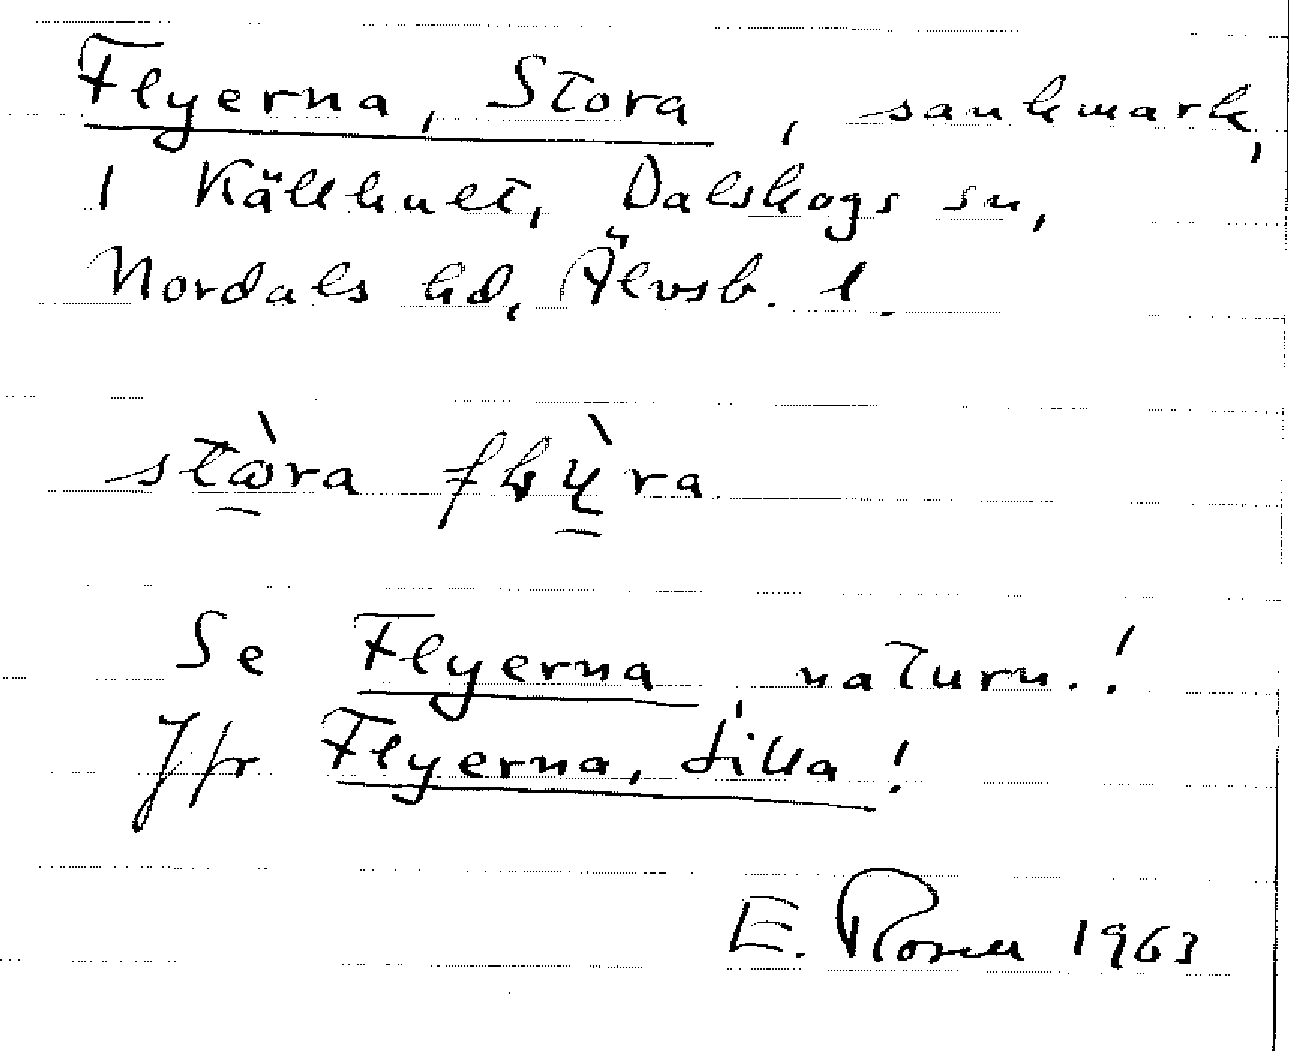 Flyerna, Stora, sankmark,
i Källhult, Dalskogs sn,
Nordals hd, Älvsb. l.
Se Flyerna, naturn.!
Jfr Flyerna, Lilla!
E. Rosell 1963